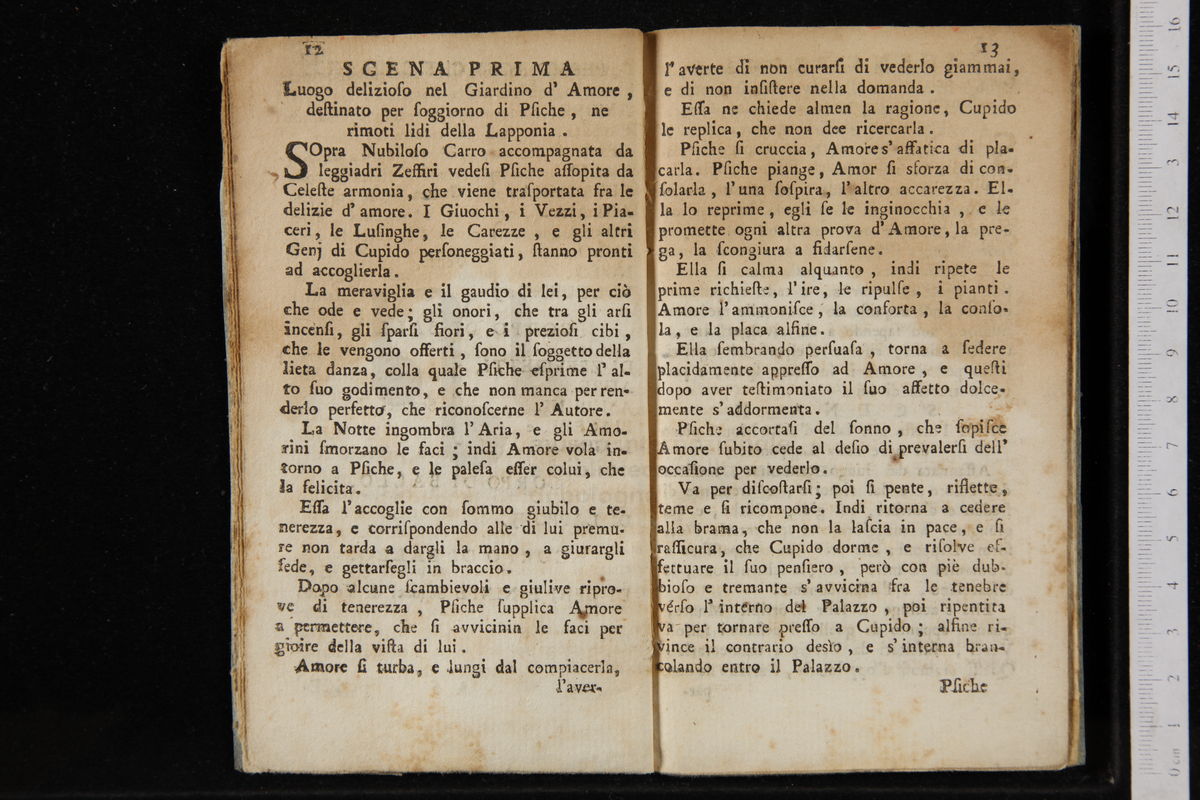 12
SCENA PRIMA
Luogo delizioſo nel Giardino d' Amore,
deſtinato per ſoggiorno di Pſiche, ne
rimoti lidi della Lapponia.
SOpra Nubiloſo Carro accompagnata da
leggiadri Zeffiri vedeſi Pſiche aſſopita da
Celeſte armonia, che viene traſportata fra le
delizie d'amore. I Giuochi, i Vezzi, i Pia-
ceri, le Luſinghe, le Carezze, e gli altri
Genj di Cupido perſoneggiati, ſtanno pronti
ad accoglierla.
La meraviglia e il gaudio di lei, per ciò
che ode e vede; gli onori, che tra gli arſi
incenſi, gli ſparſi fiori, e i prezioſi cibi,
che le vengono offerti, ſono il ſoggetto della
lieta danza, colla quale Pſiche eſprime l'al-
to ſuo godimento, e che non manca per ren-
derlo perfetto, che riconoſcerne l'Autore.
La Notte ingombra l'Aria, e gli Amo-
rini ſmorzano le faci; indi Amore vola in-
torno a Pſiche, e le paleſa eſſer colui, che
la felicita.
Eſſa l'accoglie con ſommo giubilo e te-
nerezza, e corriſpondendo alle di lui premu-
re non tarda a dargli la mano, a giurargli
fede, e gettarſegli in braccio.
Dopo alcune ſcambievoli e giulive ripro-
ve di tenerezza, Pſiche ſupplica Amore
a permettere, che ſi avvicinin le faci per
gioire della viſta di lui.
Amore ſi turba, e lungi dal compiacerla,
l'aver-
13
l'averte di non curarſi di vederlo giammai,
e di non inſiſtere nella domanda.
Eſſa ne chiede almen la ragione, Cupido
le replica, che non dee ricercarla.
Pſiche ſi cruccia, Amore s'affatica di pla-
carla. Pſiche piange, Amor ſi sforza di con-
ſolarla, l'una ſoſpira, l'altro accarezza. El-
la lo reprime, egli ſe le inginocchia, e le
promette ogni altra prova d'Amore, la pre-
ga, la ſcongiura a fidarſene.
Ella ſi calma alquanto, indi ripete le
prime richieſte, l'ire, le ripulſe, i pianti.
Amore l'ammoniſce, la conforta, la conſo-
la, e la placa alfine.
Ella ſembrando perſuaſa, torna a ſedere
placidamente appreſſo ad Amore, e queſti
dopo aver teſtimoniato il ſuo affetto dolce-
mente s'addormenta.
Pſiche accortaſi del ſonno, che ſopiſce
Amore ſubito cede al deſio di prevalerſi dell'
occaſione per vederlo.
Va per diſcoſtarſi; poi ſi pente, riflette,
teme e ſi ricompone. Indi ritorna a cedere
alla brama, che non la laſcia in pace, e ſi
raſſicura, che Cupido dorme, e riſolve ef-
fettuare il ſuo penſiero, però con piè dub-
bioſo e tremante s'avvicina fra le tenebre
vérſo l'interno del Palazzo, poi ripentita
va per tornare preſſo a Cupido; alfine ri-
vince il contrario desìo, e s'interna bran-
colando entro il Palazzo.
Pſiche